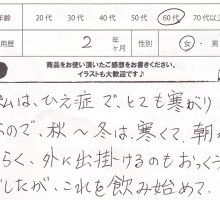 年齢 20代 30代 40代 50代 60代 70代以
用歴 2 年ヶ月 性別 女・男
商品をお使い頂いたご感想をお書きください。
イラストも大歓迎です♪
私は、ひえ症で、とても寒がり
なので、秋〜冬は、寒くて、朝が
らく、外に出掛けるのもおっくう
でしたが、これを飲み始めて、